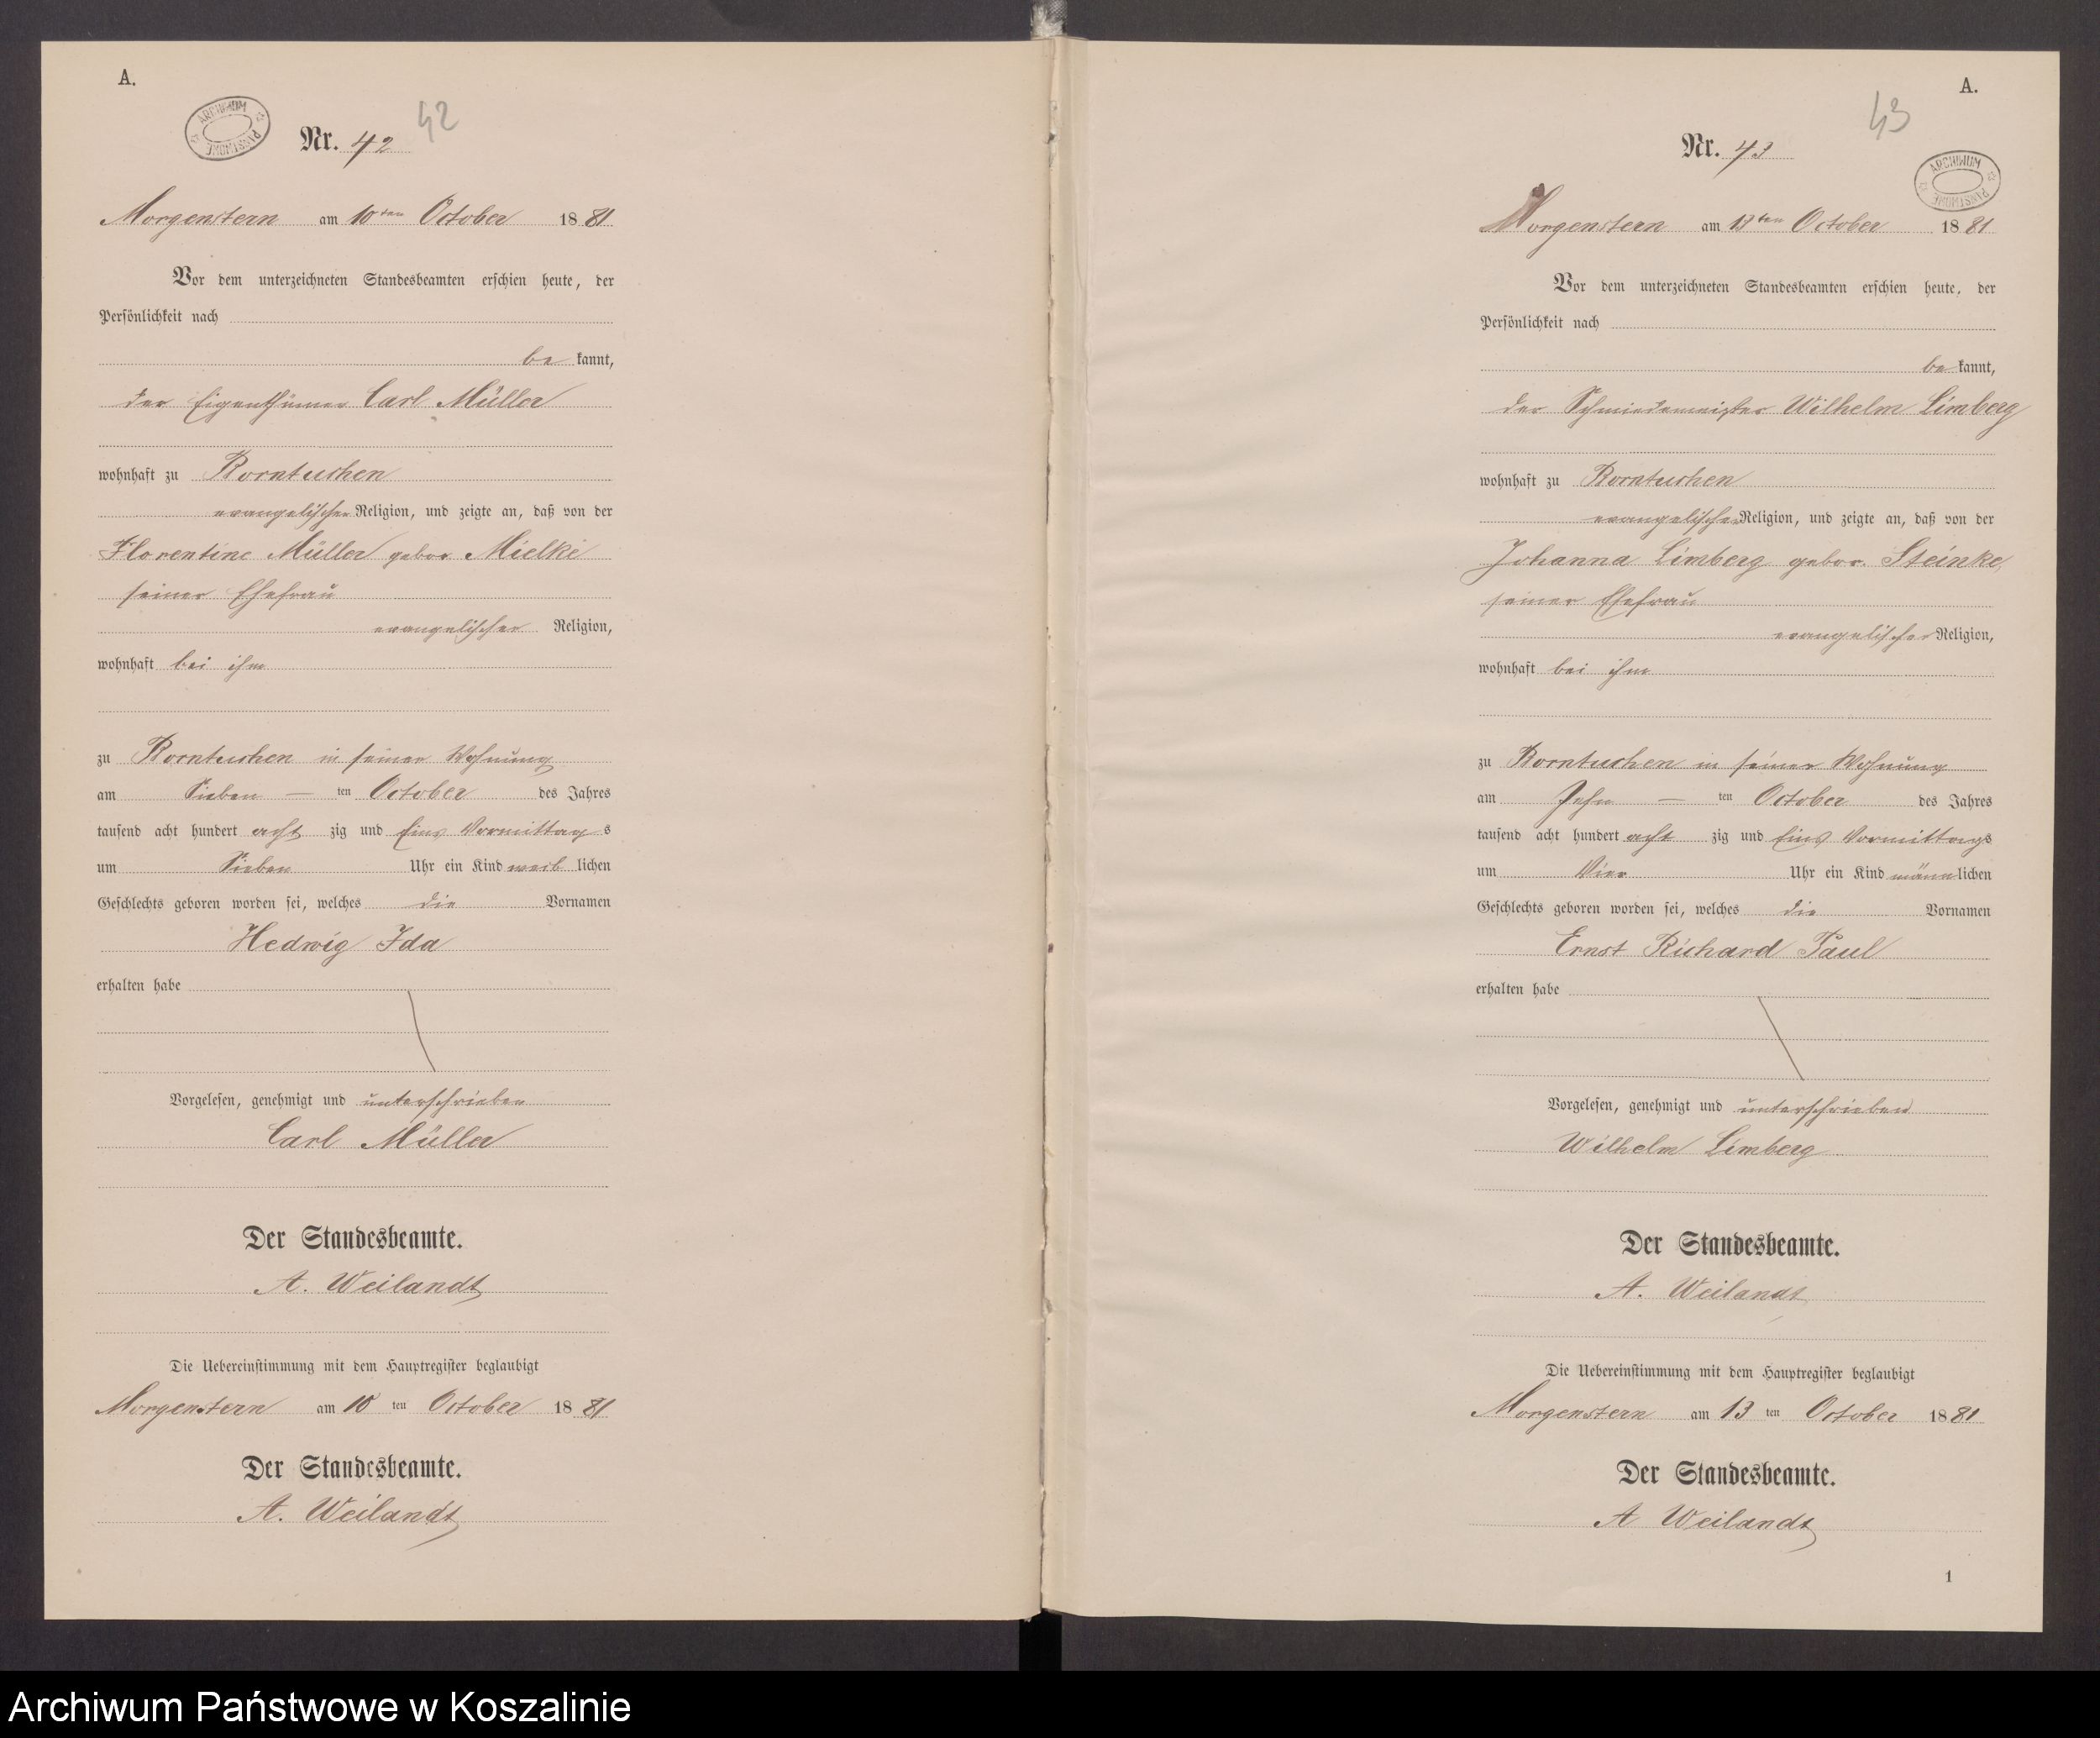 A.
ARCHIWUM PAŃSTWOWE
42
Nr. 42
Morgenstern am 10ten October 1881
Vor dem unterzeichneten Standesbeamten erschien heute, der
Persönlichkeit nach
be kannt,
der Eigenthümer Carl Müller
wohnhaft zu Borntuchen
evangelischer Religion, und zeigte an, daß von der
Florentine Müller gebor. Mielke
seiner Ehefrau
evangelischer Religion,
wohnhaft bei ihm
zu Borntuchen in seiner Wohnung
am Sieben — ten October des Jahres
tausend acht hundert acht zig und Eins Vormittag s
um Sieben Uhr ein Kind weib lichen
Geschlechts geboren worden sei, welches die Vornamen
Hedwig Ida
erhalten habe
Vorgelesen, genehmigt und unterschrieben
Carl Müller
Der Standesbeamte.
A. Weilandt
Die Uebereinstimmung mit dem Hauptregister beglaubigt
Morgenstern am 10 ten October 1881
Der Standesbeamte.
A. Weilandt
A.
43
Nr. 43
ARCHIWUM PAŃSTWOWE
Morgenstern am 13ten October 1881
Vor dem unterzeichneten Standesbeamten erschien heute, der
Persönlichkeit nach
be kannt,
der Schmiedemeister Wilhelm Limberg
wohnhaft zu Borntuchen
evangelischer Religion, und zeigte an, daß von der
Johanna Limberg gebor. Steinke,
seiner Ehefrau
evangelischer Religion,
wohnhaft bei ihm
zu Borntuchen in seiner Wohnung
am Zehn — ten October des Jahres
tausend acht hundert acht zig und Eins Vormittags
um Vier Uhr ein Kind männ lichen
Geschlechts geboren worden sei, welches die Vornamen
Ernst Richard Paul
erhalten habe
Vorgelesen, genehmigt und unterschrieben
Wilhelm Limberg
Der Standesbeamte.
A. Weilandt
Die Uebereinstimmung mit dem Hauptregister beglaubigt
Morgenstern am 13 ten October 1881
Der Standesbeamte.
A Weilandt
1
Archiwum Państwowe w Koszalinie